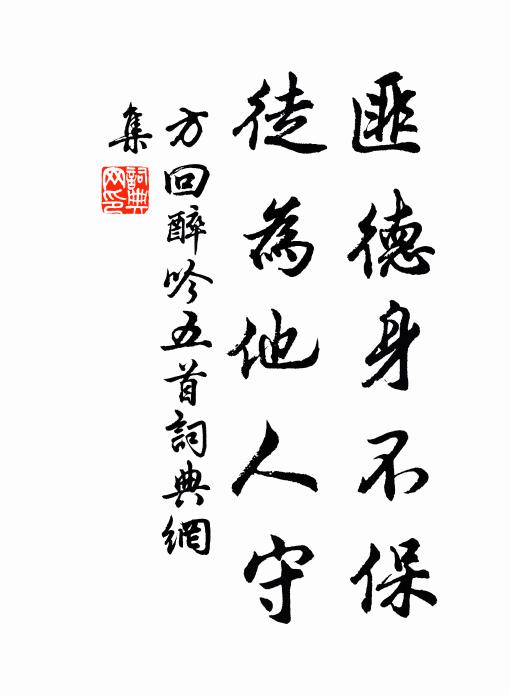 匪德身不保
徒為他人守
方回醉吟五首詞典網
集
詞典
网印